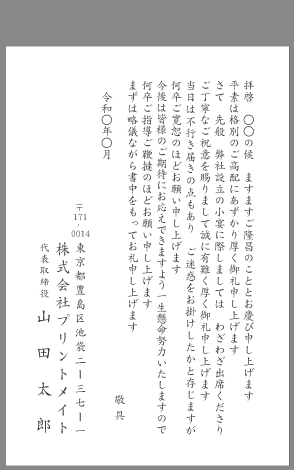 拝啓　〇〇の候　ますますご隆昌のこととお慶び申し上げます
平素は格別のご高配にあずかり厚く御礼申し上げます
さて　先般　弊社設立の小宴に際しましては　わざわざご出席くださり
ご丁寧なご祝意を賜りまして誠に有難く厚く御礼申し上げます
当日は不行き届きの点もあり　ご迷惑をお掛けしたかと存じますが
何卒ご寛恕のほどお願い申し上げます
今後は皆様のご期待にお応えできますよう一生懸命努力いたしますので
何卒ご指導ご鞭撻のほどお願い申し上げます
まずは略儀ながら書中をもってお礼申し上げます
敬具
令和〇年〇月
〒171-0014
東京都豊島区池袋二ー三七ー一
株式会社プリントメイト
代表取締役　山田太郎